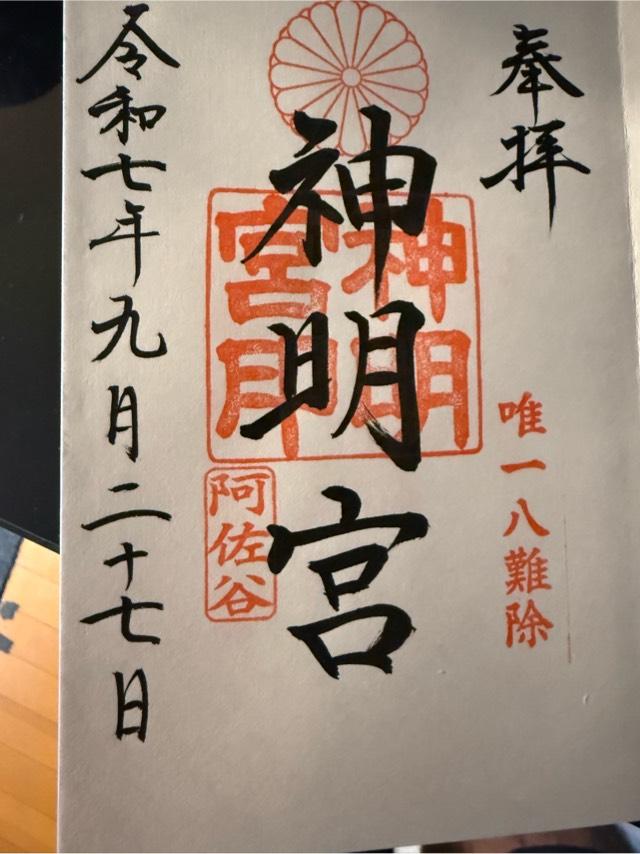 奉拝
唯一八難除
神明宮
神明
宮印
阿佐谷
令和七年九月二十七日